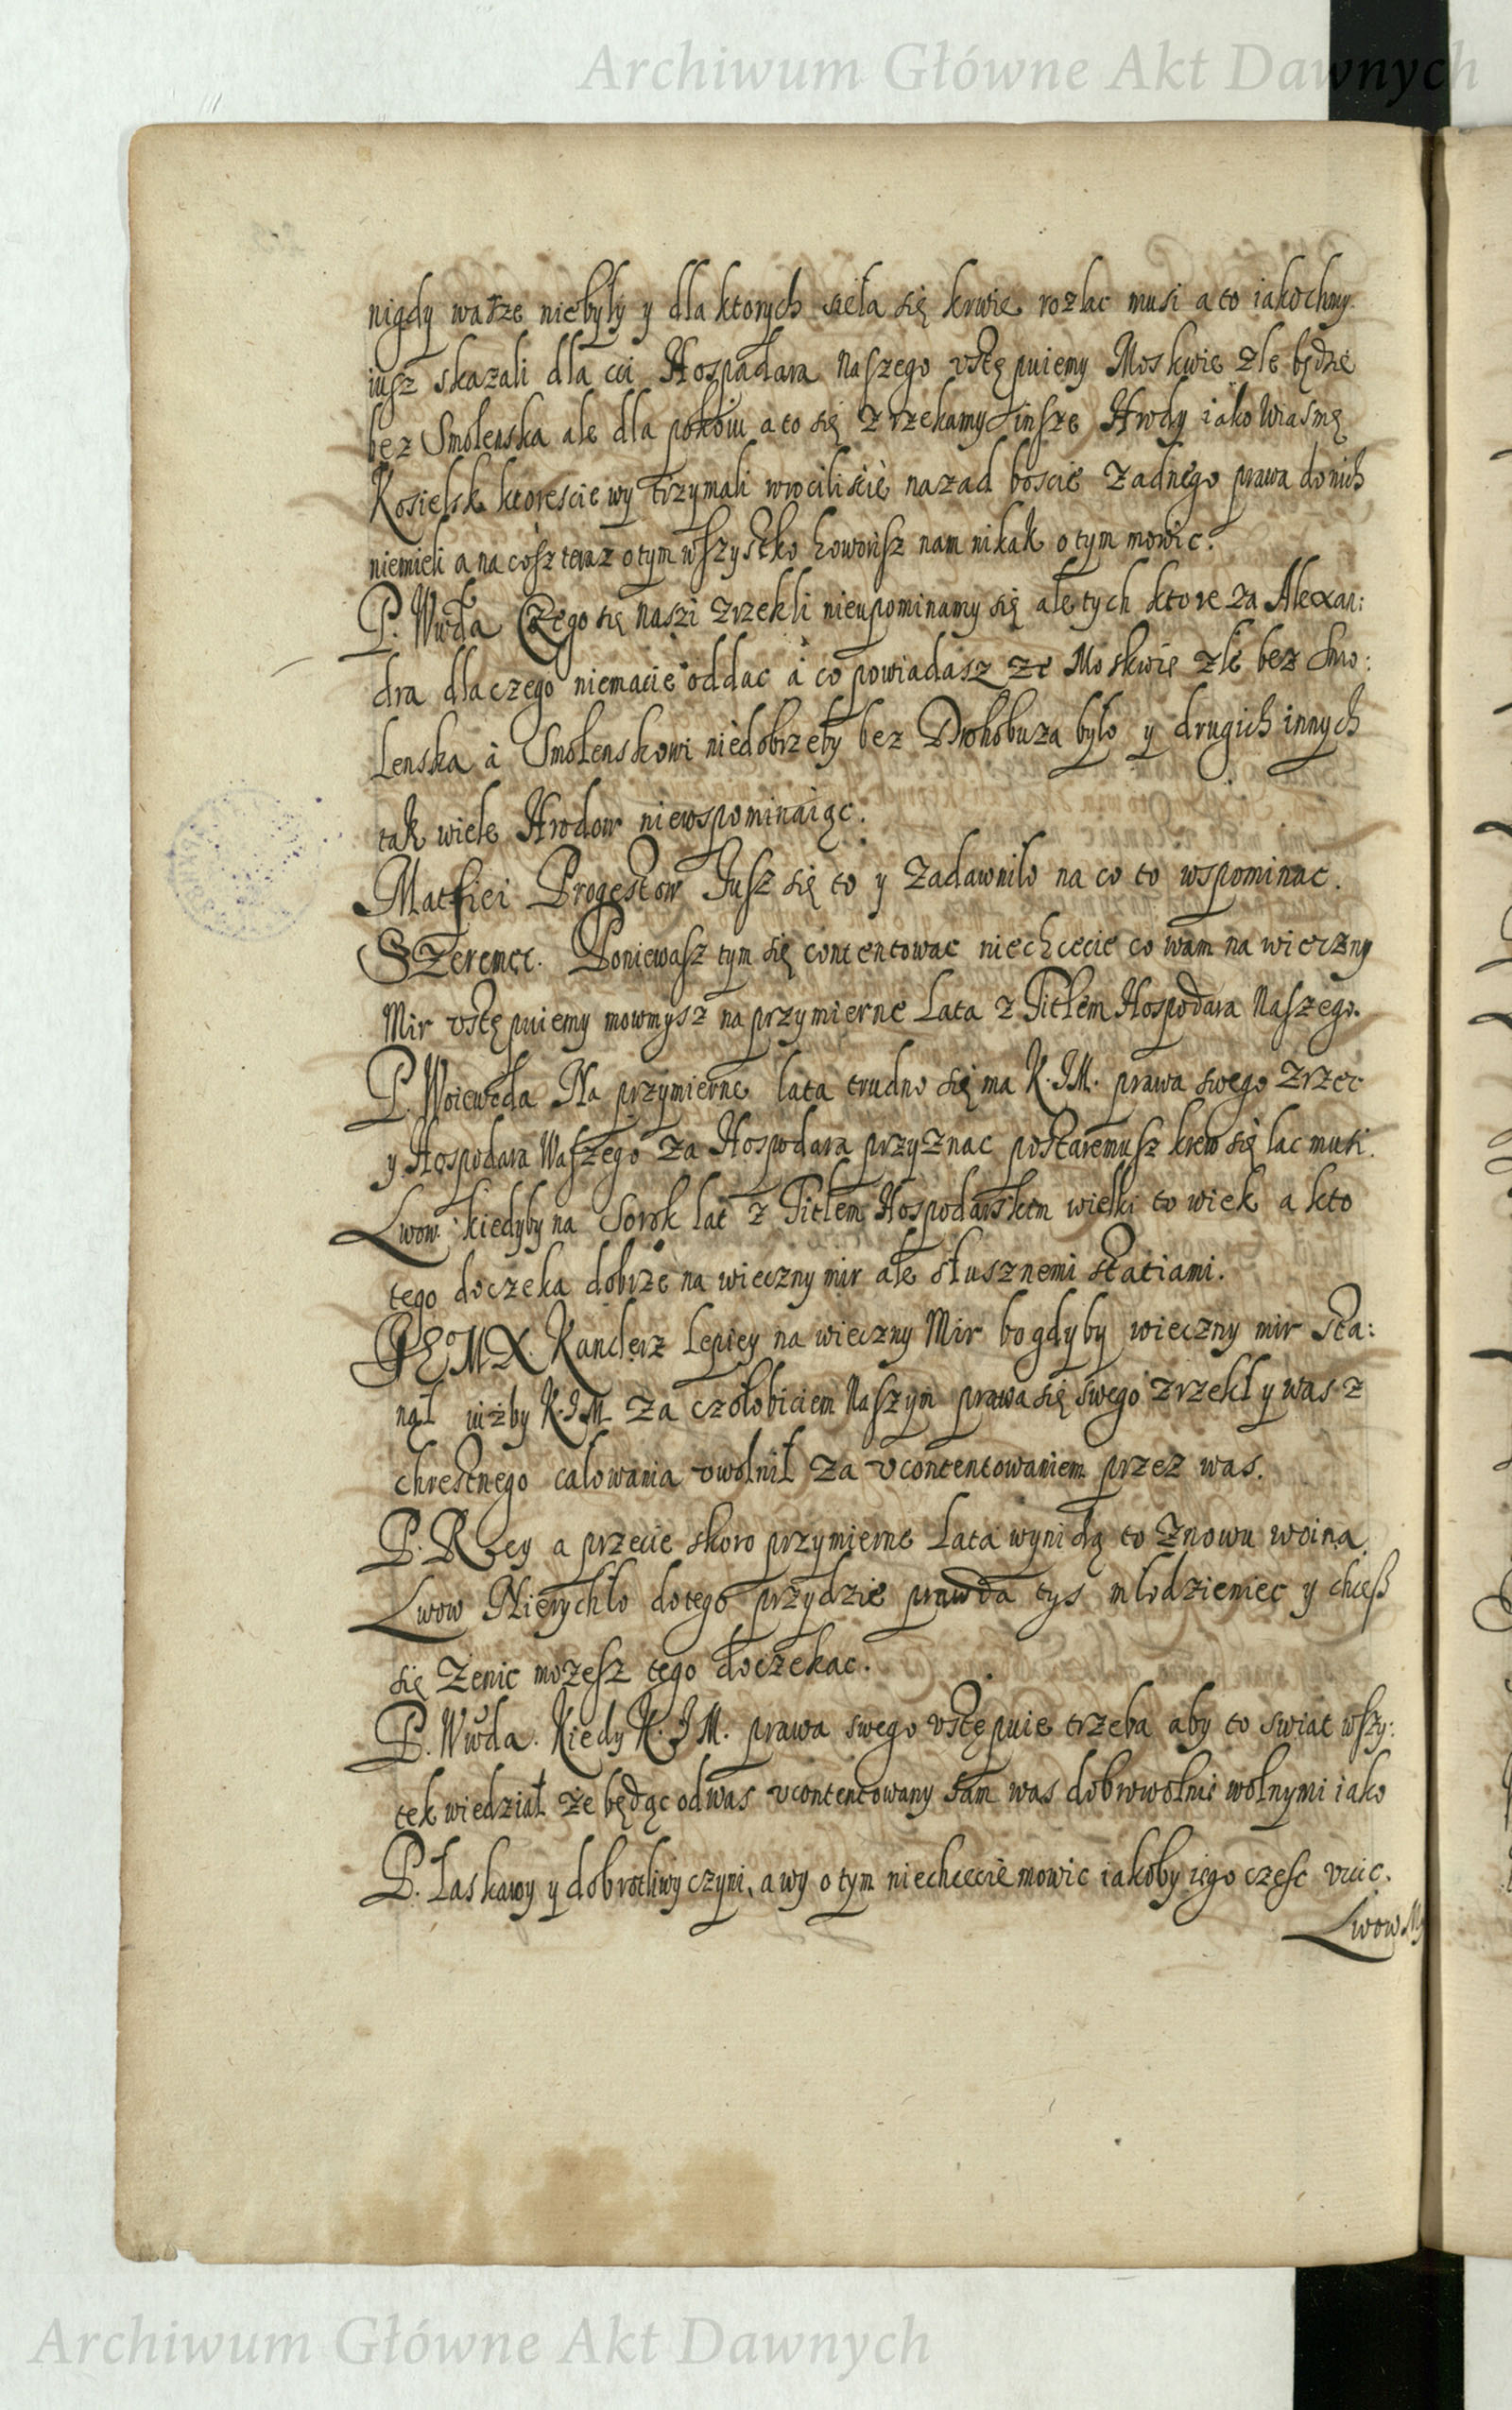 Archiwum Główne Akt Dawnych
nigdy wasze niebyły y dla ktorych sieła się krwie rozlac musi a to iakochmy
iusz skazali dla cci Hospadara Naszego vstępuiemy Moskwie zle będzie
bez Smolenska ale dla pokoiu a to się zrzekamy insze Hrody iako Wiasmę
Kosielsk ktorescie wy trzymali wrociliscie nazad boscie zadnego prawa do nich
niemieli a na cosz teraz o tym wszystko howorisz nam nikak o tym mowic.
P. Wwda Czego się Naszi zrzekli nieupominamy się ale tych ktore za Alexan:
dra dlaczego niemacie oddac à co powiadasz ze Moskwie zle bez Smo:
lenska à Smolenskowi niedobrzeby bez Drohobuza było y drugich innych
tak wiele Hrodow niewspominaiąc.
Matfiei Progestow Jusz się to y zadawniło na co to wspominac.
Szeremet. Poniewasz tym się contentowac niechcecie co wam na wieczny
Mir vstępuiemy mowmysz na przymierne Lata z Titłem Hospodara Naszego.
P. Woiewoda Na przymierne lata trudno się ma K. J M. prawa swego zrzec
y Hospodara Waszego za Hospodara przyznac postaremusz krew się lac musi.
Lwow. kiedyby na Sorok lat z Titłem Hospodarskim wielki to wiek a kto
tego doczeka dobrze na wieczny mir ale słusznemi statiami.
JE M X. Kanclerz Lepiey na wieczny Mir bo gdyby wieczny mir sta:
nął iużby K. J M. za czołobiciem Naszym prawa się swego zrzekł y was z
chrestnego calowania vwolnił za vcontentowaniem przez was.
P. Rey a przecie skoro przymierne Lata wynidą to znowu woina.
Lwow Nierychło do tego przydzie prawda tys młodzieniec y chcesz
się żenic możesz tego doczekac.
P. Wwda. Kiedy K. J M. prawa swego vstępuie trzeba aby to swiat wszy:
tek wiedział że będąc od was vcontentowany sam was dobrowolnie wolnymi iako
P. Łaskawy y dobrotliwy czyni, a wy o tym niechcecie mowic iakoby iego częsc vcic.
Lwow
Archiwum Główne Akt Dawnych